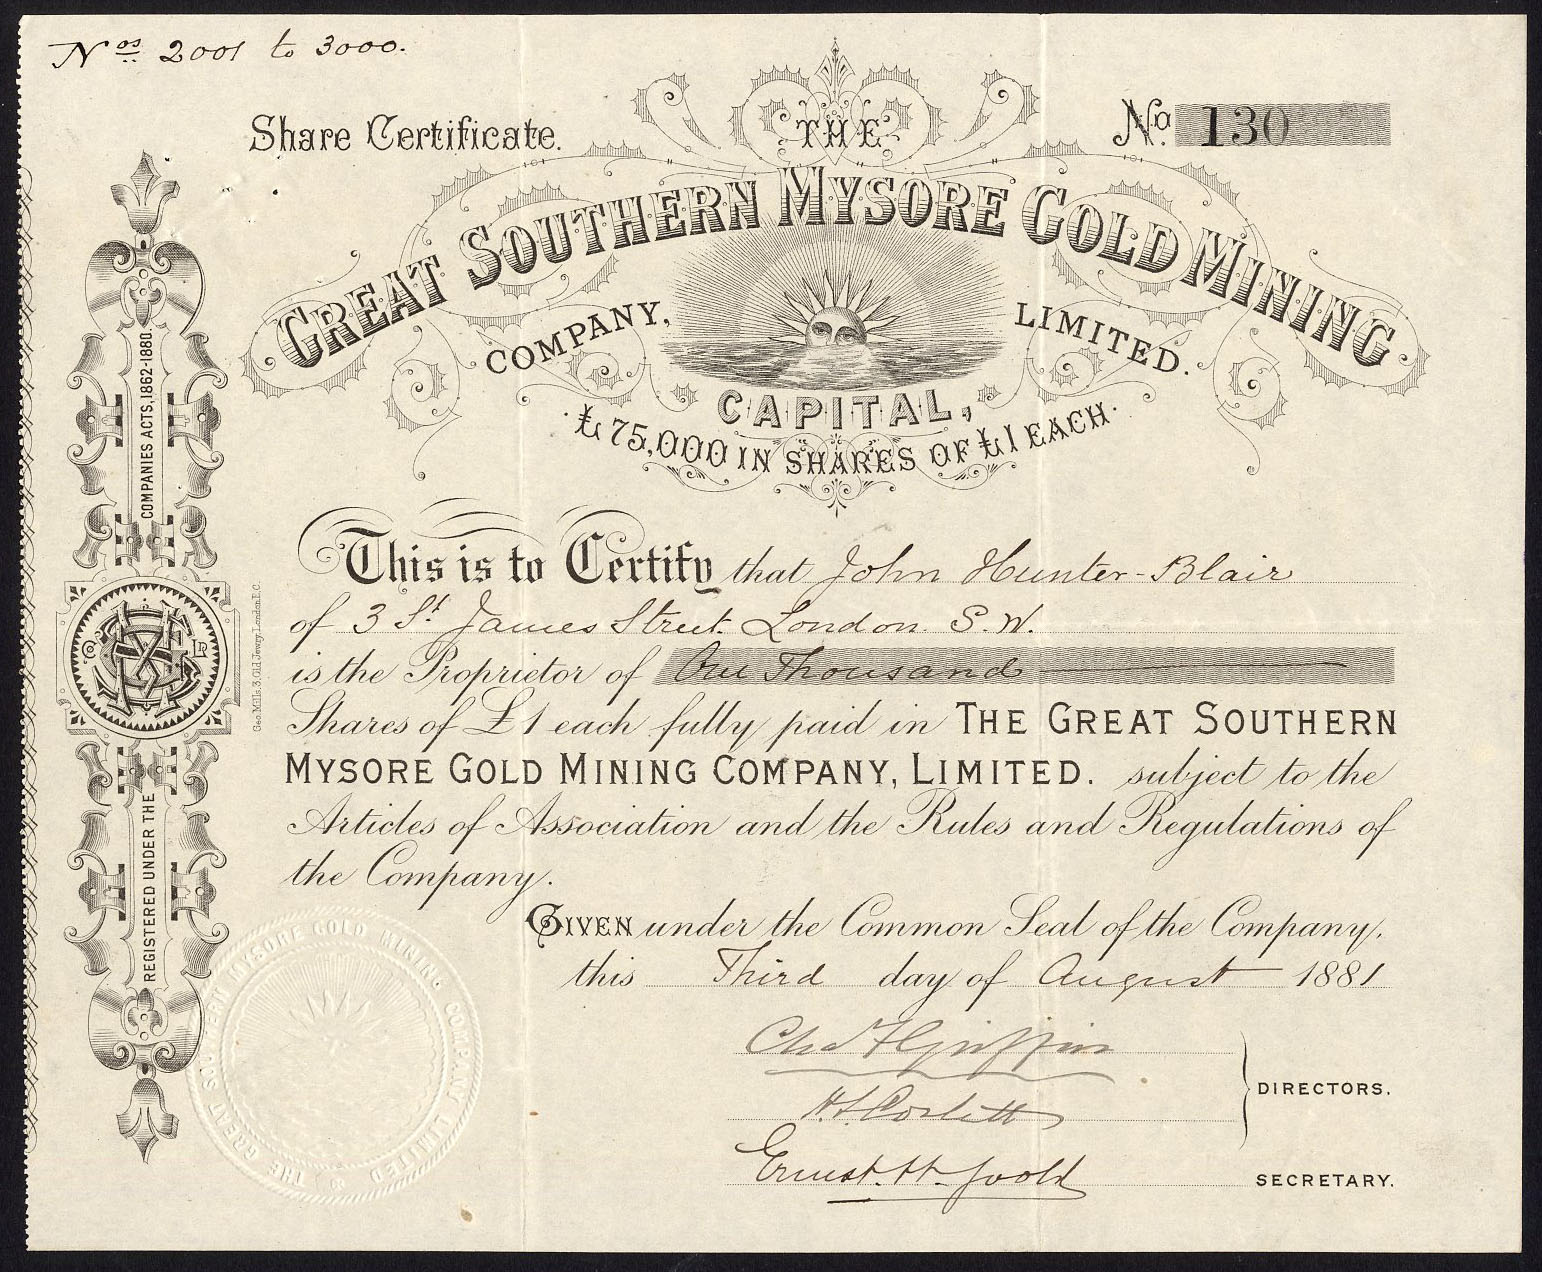 Nos 2001 to 3000.
Share Certificate.
No. 130
THE
GREAT SOUTHERN MYSORE GOLD MINING
COMPANY, LIMITED.
CAPITAL,
£75,000 IN SHARES OF £1 EACH.
This is to Certify that John Hunter-Blair
of 3 St James Street. London. S.W.
is the Proprietor of One Thousand
Shares of £1 each fully paid in THE GREAT SOUTHERN
MYSORE GOLD MINING COMPANY, LIMITED. subject to the
Articles of Association and the Rules and Regulations of
the Company.
GIVEN under the Common Seal of the Company,
this Third day of August 1881
Chas F Griffin
DIRECTORS.
H. S. Corlett
Ernest. H.
SECRETARY.
REGISTERED UNDER THE
COMPANIES ACTS, 1862-1880.
Co LD
Geo. Mills, 3, Old Jewry, London E.C.
THE GREAT SOUTHERN MYSORE GOLD MINING COMPANY LIMITED